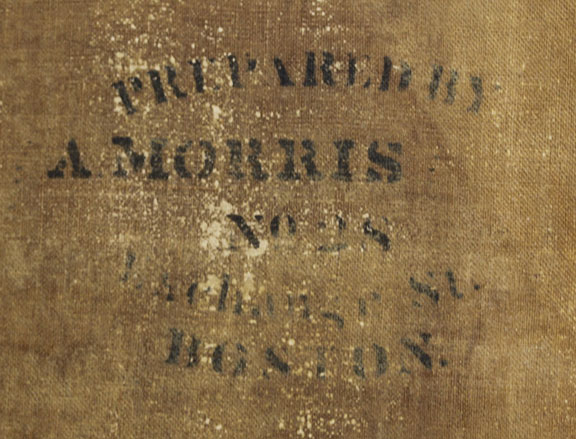 PREPARED BY
A MORRIS
No 28
Exchange St.
BOSTON.